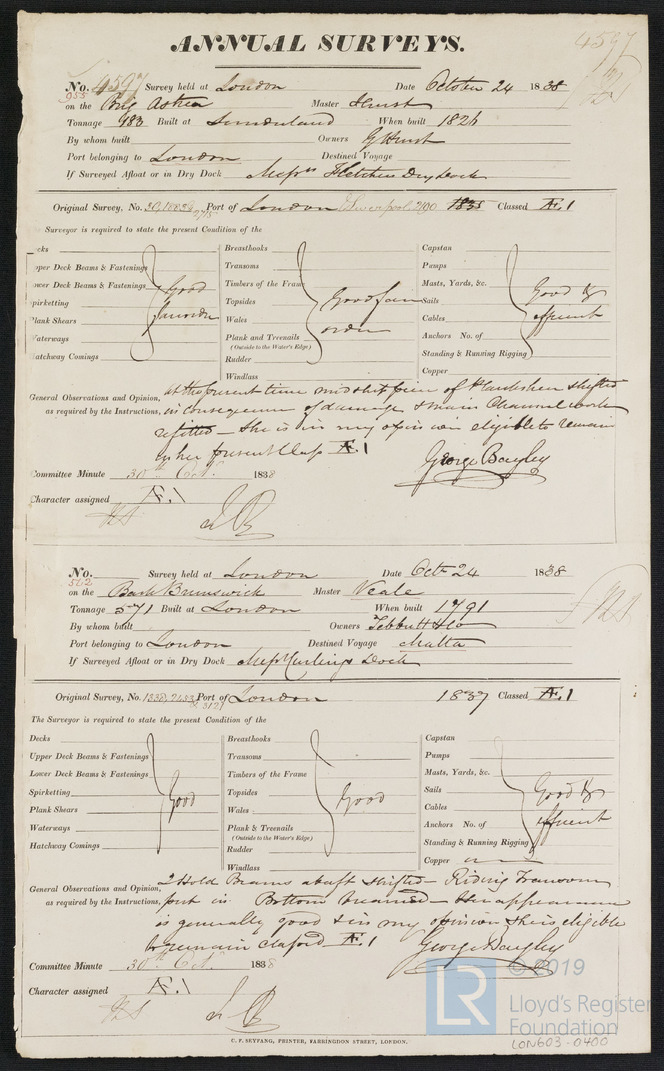 ANNUAL SURVEYS.
4597
No. 4597 Survey held at London Date October 24 1838
955
on the Brig Astrea Master Hurst
Tonnage 983 Built at Sunderland When built 1826
By whom built Owners G Hurst
Port belonging to London Destined Voyage
If Surveyed Afloat or in Dry Dock Messrs Fletchers Dry Dock
Original Survey, No. Port of London Liverpool 2100 1835 Classed Æ.1
Surveyor is required to state the present Condition of the
ecks
pper Deck Beams & Fastenings
ower Deck Beams & Fastenings Good
pirketting
lank Shears
aterways
atchway Comings
Breasthooks
Transoms
Timbers of the Frame
Topsides Good
Wales order
Plank and Treenails
(Outside to the Water's Edge)
Rudder
Windlass
Capstan
Pumps
Masts, Yards, &c. Good &
Sails
Cables efficient
Anchors No. of
Standing & Running Rigging
Copper
General Observations and Opinion, at the present time midship piece of Plankshear shifted
as required by the Instructions, in consequence of damage & main Channel work
refitted – She is in my opinion eligible to remain
as her present Class Æ 1
George Bayley
Committee Minute 30th Oct. 1838
Character assigned Æ.1
No. Survey held at London Date Octr 24 1838
562
on the Bark Brunswick Master Veale
Tonnage 571 Built at London When built 1791
By whom built Owners Tebbutt & Co
Port belonging to London Destined Voyage Malta
If Surveyed Afloat or in Dry Dock Messrs Curlings Dock
Original Survey, No. 1338, 2433 Port of London 1837 Classed Æ.1
The Surveyor is required to state the present Condition of the
Decks
Upper Deck Beams & Fastenings
Lower Deck Beams & Fastenings
Spirketting Good
Plank Shears
Waterways
Hatchway Comings
Breasthooks
Transoms
Timbers of the Frame
Topsides Good
Wales
Plank & Treenails
(Outside to the Water's Edge)
Rudder
Windlass
Capstan
Pumps
Masts, Yards, &c.
Sails Good &
Cables
Anchors No. of efficient
Standing & Running Rigging
Copper
General Observations and Opinion, 2 Hold Beams abaft shifted – Riding Transom
as required by the Instructions, put in Bottom breamed – Her appearance
is generally good & in my opinion she is eligible
to remain classed Æ 1
George Bayley
Committee Minute 30th Oct. 1838
Character assigned Æ.1
C. F. SEYFANG, PRINTER, FARRINGDON STREET, LONDON.
LR © 2019
Lloyd's Register
Foundation
LON603-0400